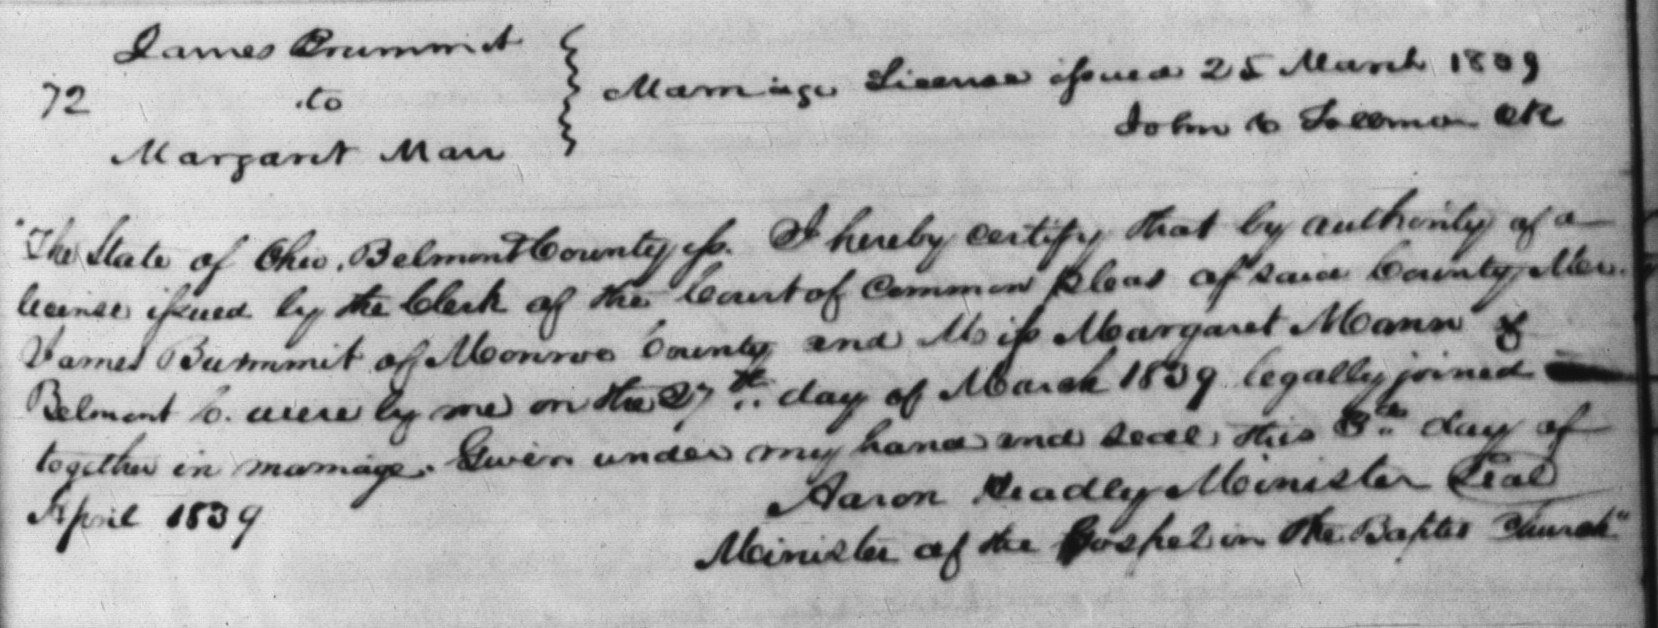 James Brummit
72 to
Margaret Man
Marriage License issued 25 March 1839
John C Tallman Clk
"The State of Ohio, Belmont County ss. I hereby certify that by authority of a
license issued by the Clerk of the Court of Common pleas of said County, Mr.
James Bummit of Monroe County and Miss Margaret Mann of
Belmont C. were by me on the 27th day of March 1839 legally joined
together in marriage. Given under my hand and seal, this 3d day of
April 1839
Aaron Headly Minister Seal
Minister of the Gospel in the Baptis Church"